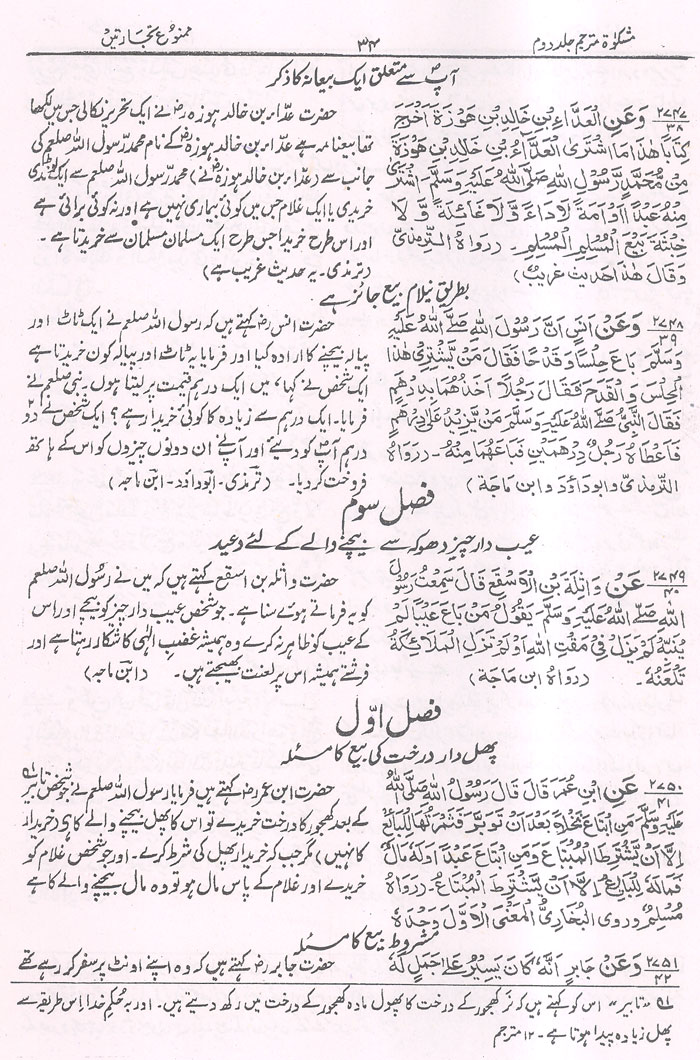 مشکوٰۃ مترجم جلد دوم
۳۴
ممنوع تجارتیں
آپؐ سے متعلق ایک بیعانہ کا ذکر
۲۷۴۷
۳۸
وَعَنِ الْعَدَّاءِ بْنِ خَالِدِ بْنِ هَوْزَةَ اَخْرَجَ
كِتَابًا هٰذَا مَا اشْتَرَى الْعَدَّاءُ بْنُ خَالِدِ بْنِ هَوْزَةَ
مِنْ مُحَمَّدٍ رَّسُوْلِ اللّٰهِ صَلَّى اللّٰهُ عَلَيْهِ وَسَلَّمَ اشْتَرٰى
مِنْهُ عَبْدًا اَوْ اَمَةً لَا دَاءَ وَلَا غَائِلَةَ وَّ لَا
خِبْثَةَ بَيْعَ الْمُسْلِمِ الْمُسْلِمَ۔ (رَوَاهُ التِّرْمِذِىُّ
وَقَالَ هٰذَا حَدِيْثٌ غَرِيْبٌ)
حضرت عدّاء بن خالد ہوزہ رضؓ نے ایک تحریر نکالی جس میں لکھا
تھا بیعنامہ ہے عدّاء بن خالد ہوزہؓ کے نام محمد رّسول اللہ صلعم کی
جانب سے (عداء بن خالد ہوزہؓ نے) محمد رّسول اللہ صلعم سے ایک لونڈی
خریدی یا ایک غلام جس میں کوئی بیماری نہیں ہے اور نہ کوئی برائی ہے
اور اس طرح خریدا جس طرح ایک مسلمان مسلمان سے خریدتا ہے۔
(ترمذی۔ یہ حدیث غریب ہے)
بطریق نیلام بیع جائز ہے
۲۷۴۸
۳۹
وَعَنْ اَنَسٍ اَنَّ رَسُوْلَ اللّٰهِ صَلَّى اللّٰهُ عَلَيْهِ
وَسَلَّمَ بَاعَ حِلْسًا وَقَدَحًا فَقَالَ مَنْ يَّشْتَرِىْ هٰذَا
الْحِلْسَ وَالْقَدَحَ فَقَالَ رَجُلٌ اٰخُذُهُمَا بِدِرْهَمٍ
فَقَالَ النَّبِىُّ صَلَّى اللّٰهُ عَلَيْهِ وَسَلَّمَ مَنْ يَّزِيْدُ عَلٰى دِرْهَمٍ
فَاَعْطَاهُ رَجُلٌ دِرْهَمَيْنِ فَبَاعَهُمَا مِنْهُ۔ (رَوَاهُ
التِّرْمِذِىُّ وَابُوْدَاوٗدَ وَابْنُ مَاجَةَ)
حضرت انس رضؓ کہتے ہیں کہ رسول اللہ صلعم نے ایک ٹاٹ اور
پیالہ بیچنے کا ارادہ کیا اور فرمایا یہ ٹاٹ اور پیالہ کون خریدتا ہے
ایک شخص نے کہا، میں ایک درہم قیمت پر لیتا ہوں۔ نبی صلعم نے
فرمایا۔ ایک درہم سے زیادہ کا کوئی خریدار ہے؟ ایک شخص نے دو
درہم آپؐ کو دیئے اور آپؐ نے ان دونوں چیزوں کو اس کے ہاتھ
فروخت کر دیا۔ (ترمذی۔ ابوداؤد۔ ابن ماجہ)
فصل سوم
عیب دار چیز دھوکہ سے بیچنے والے کے لئے وعید
۲۷۴۹
۴۰
عَنْ وَاثِلَةَ بْنِ الْاَسْقَعِ قَالَ سَمِعْتُ رَسُوْلَ
اللّٰهِ صَلَّى اللّٰهُ عَلَيْهِ وَسَلَّمَ يَقُوْلُ مَنْ بَاعَ عَيْبًا لَمْ
يُنَبِّهْ لَمْ يَزَلْ فِىْ مَقْتِ اللّٰهِ اَوْ لَمْ تَزَلِ الْمَلَائِكَةُ
تَلْعَنُهٗ۔ (رَوَاهُ ابْنُ مَاجَةَ)
حضرت واثلہ بن اسقع کہتے ہیں کہ میں نے رسُول اللہ صلعم
کو یہ فرماتے ہوئے سنا ہے۔ جو شخص عیب دار چیز کو بیچے اور اس
کے عیب کو ظاہر نہ کرے وہ ہمیشہ غضبِ الٰہی کا شکار رہتا ہے اور
فرشتے ہمیشہ اس پر لعنت بھیجتے ہیں۔ (ابن ماجہ)
فصل اوّل
پھل دار درخت کی بیع کا مسئلہ
۲۷۵۰
۴۱
عَنِ ابْنِ عُمَرَ قَالَ قَالَ رَسُوْلُ اللّٰهِ صَلَّى اللّٰهُ
عَلَيْهِ وَسَلَّمَ مَنِ ابْتَاعَ نَخْلًا بَعْدَ اَنْ تُؤَبَّرَ فَثَمَرَتُهَا لِلْبَائِعِ
اِلَّا اَنْ يَّشْتَرِطَ الْمُبْتَاعُ وَمَنِ ابْتَاعَ عَبْدًا وَلَهٗ مَالٌ
فَمَالُهٗ لِلْبَائِعِ اِلَّا اَنْ يَّشْتَرِطَ الْمُبْتَاعُ۔ (رَوَاهُ
مُسْلِمٌ وَرَوَى الْبُخَارِىُّ الْمَعْنَى الْاَوَّلَ وَحْدَهٗ
حضرت ابن عمر رضؓ کہتے ہیں فرمایا رسول اللہ صلعم نے جو شخص تابیر
کے بعد کھجور کا درخت خریدے تو اس کا پھل بیچنے والے کا ہے (خریدار
کا نہیں) مگر جب کہ خریدار پھل کی شرط کرے۔ اور جو شخص غلام کو
خریدے اور غلام کے پاس مال ہو تو وہ مال بیچنے والے کا ہے
مشروط بیع کا مسئلہ
۲۷۵۱
۴۲
وَعَنْ جَابِرٍ اَنَّهٗ كَانَ يَسِيْرُ عَلٰى جَمَلٍ لَهٗ
حضرت جابر رضؓ کہتے ہیں کہ وہ اپنے اونٹ پر سفر کر رہے تھے
۱؎ "تابیر" اس کو کہتے ہیں کہ نر کھجور کے درخت کا پھول مادہ کھجور کے درخت میں رکھ دیتے ہیں۔ اور بہ حکمِ خدا اس طریقہ سے
پھل زیادہ پیدا ہوتا ہے۔ ۱۲ مترجم